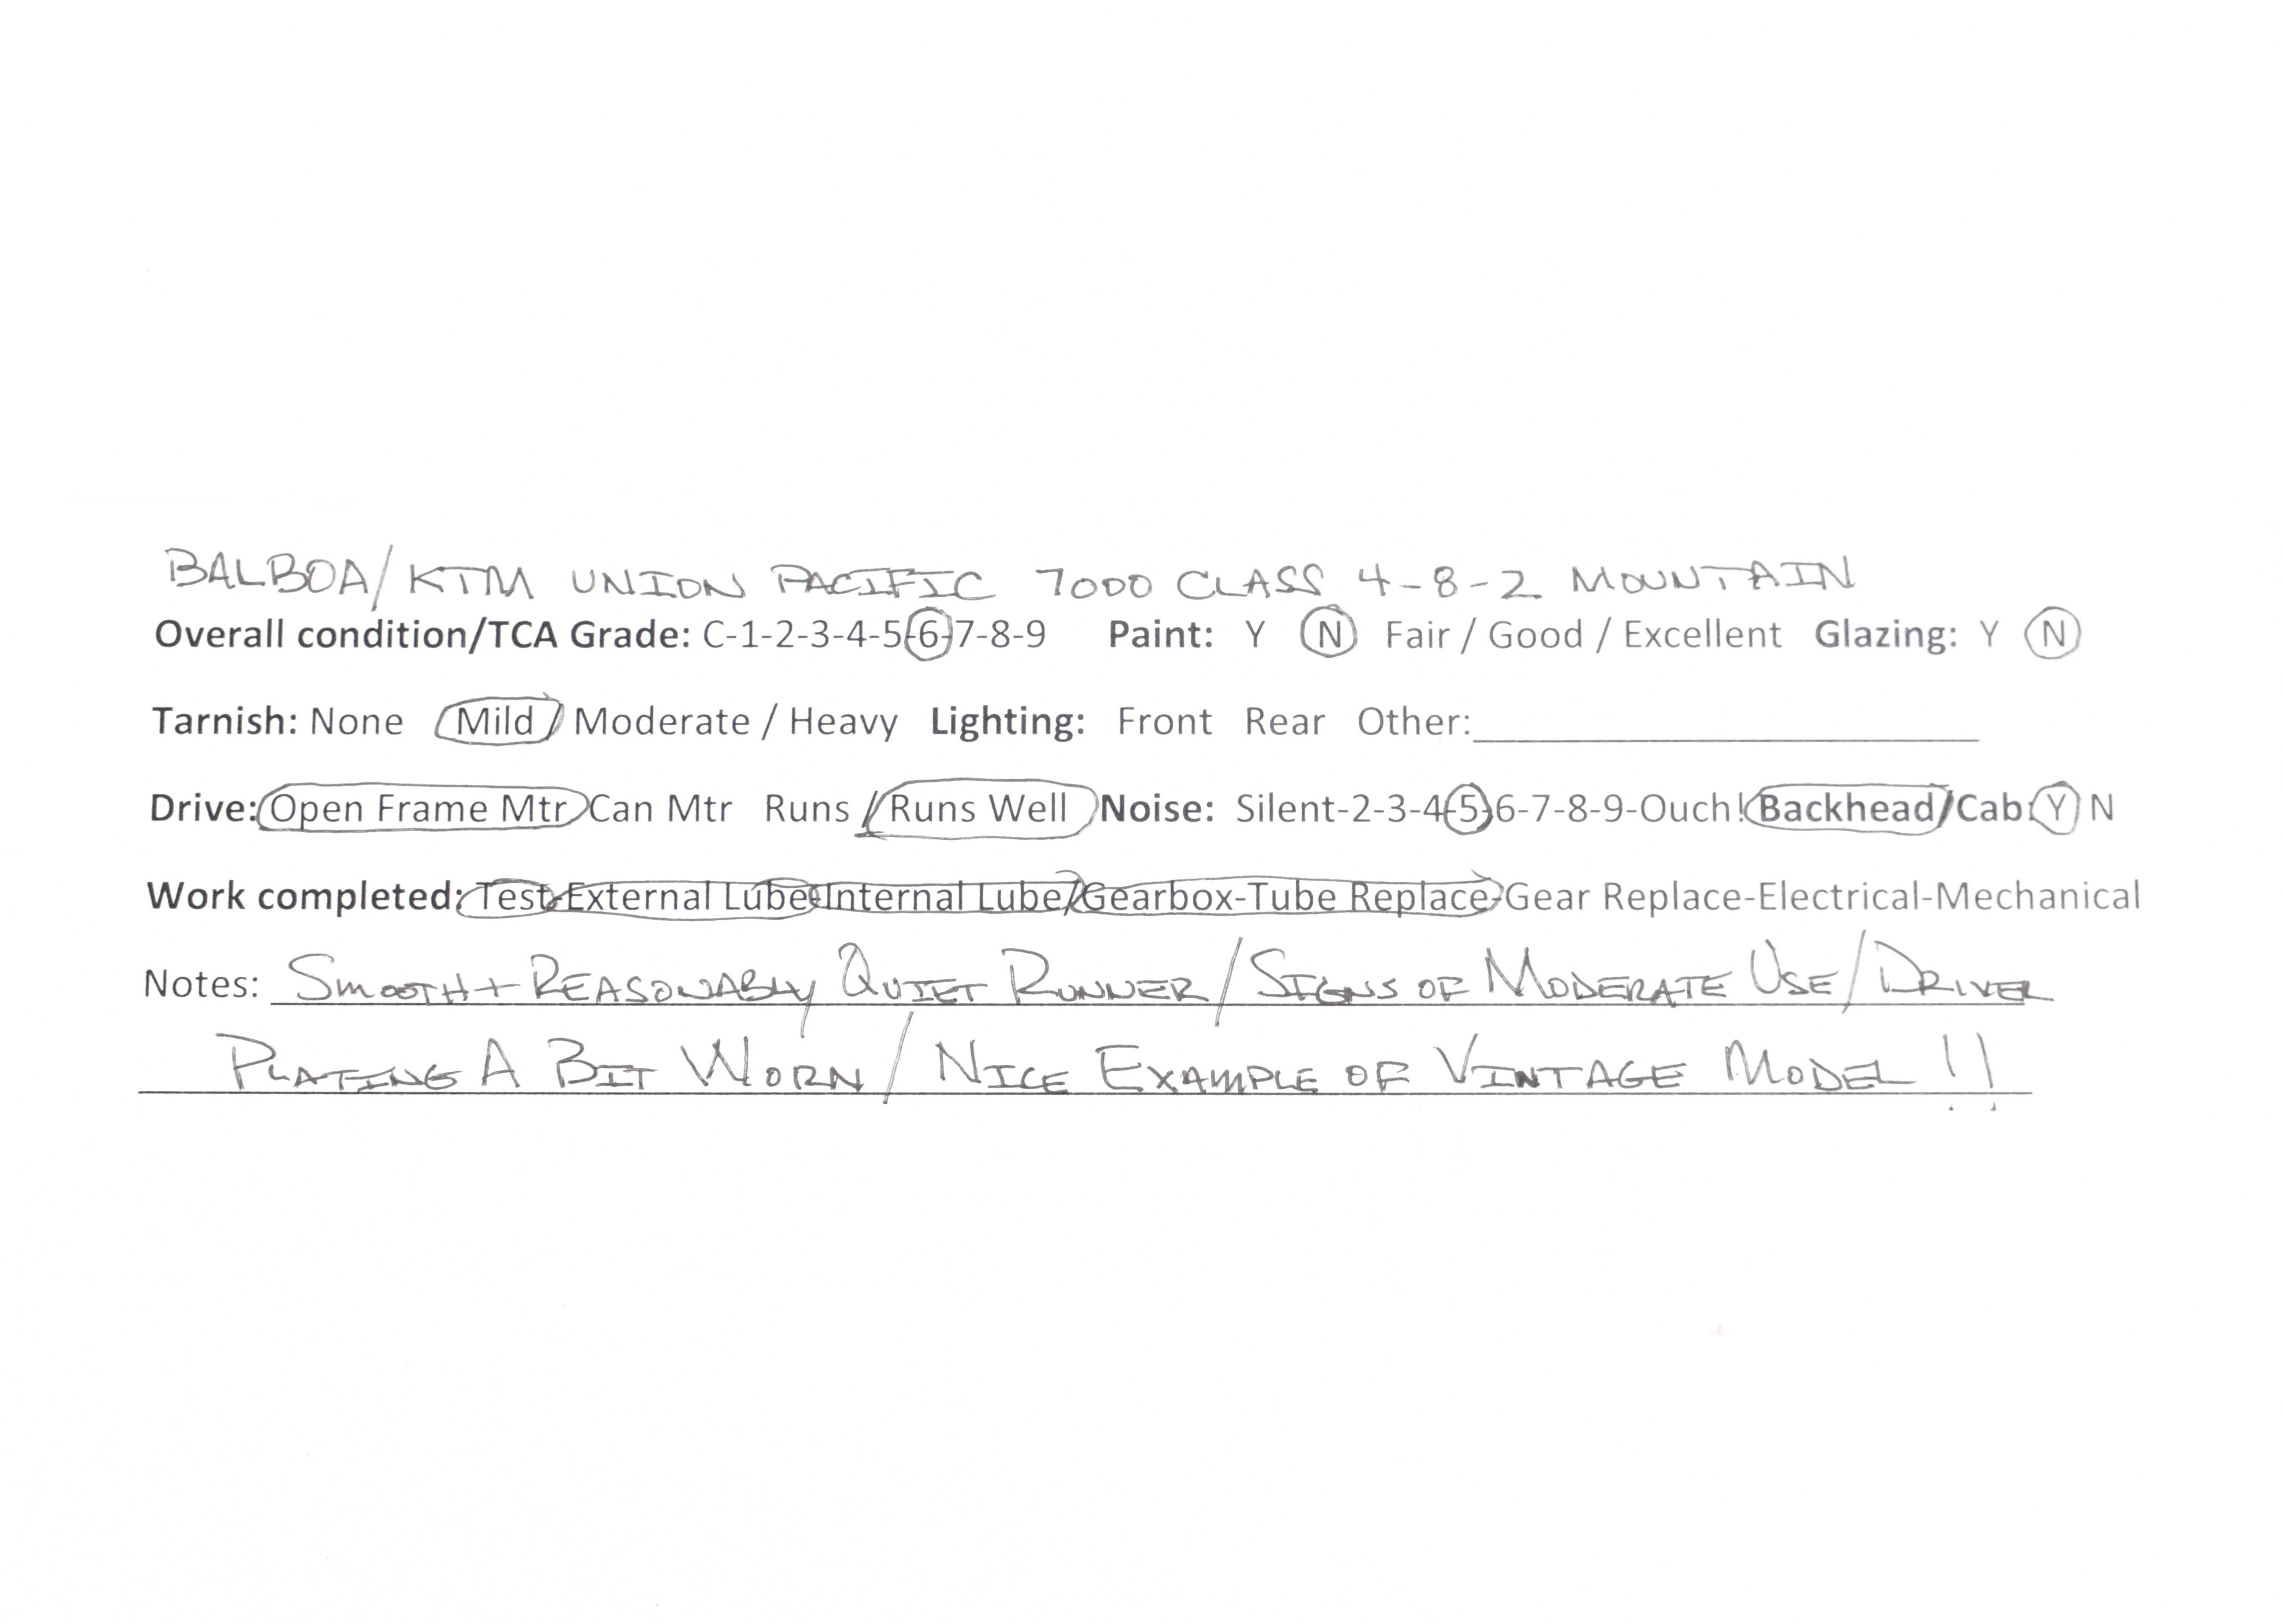 BALBOA/KTM UNION PACIFIC 7000 CLASS 4-8-2 MOUNTAIN
Overall condition/TCA Grade: C-1-2-3-4-5-6-7-8-9 Paint: Y N Fair / Good / Excellent Glazing: Y N
Tarnish: None Mild / Moderate / Heavy Lighting: Front Rear Other:
Drive: Open Frame Mtr Can Mtr Runs / Runs Well Noise: Silent-2-3-4-5-6-7-8-9-Ouch! Backhead/Cab: Y N
Work completed: Test-External Lube-Internal Lube/Gearbox-Tube Replace-Gear Replace-Electrical-Mechanical
Notes: SMOOTH + REASONABLY QUIET RUNNER/SIGNS OF MODERATE USE/DRIVER
PLATING A BIT WORN/NICE EXAMPLE OF VINTAGE MODEL !!